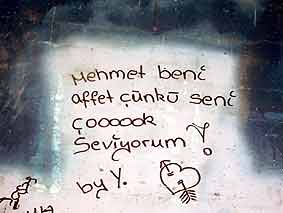 Mehmet beni
affet çünkü seni
çoooook
Seviyorum !
by Y.